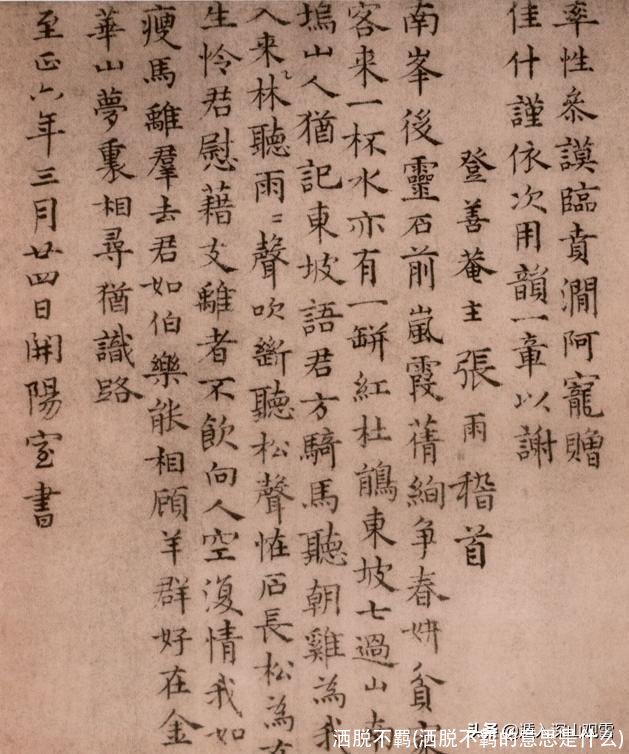 率性叅謨臨賁澗阿寵贈
佳什謹依次用韻一章以謝
登善菴主張雨稽首
南峯後靈石前嵐霞蒨絢争春妍貧
客来一杯水亦有一缾紅杜鵑東坡七過山
塢山人猶記東坡語君方騎馬聽朝雞為我
入来林聽雨〻聲吹斷聽松聲恠石長松為
生怜君慰藉支離者不飲向人空復情我如
瘦馬離羣去君如伯樂能相顧羊群好在金
華山夢裏相尋猶識路
至正六年三月廿四日開陽室書
头条 @潜入深山观雪
洒脱不羁(洒脱不羁的意思是什么)